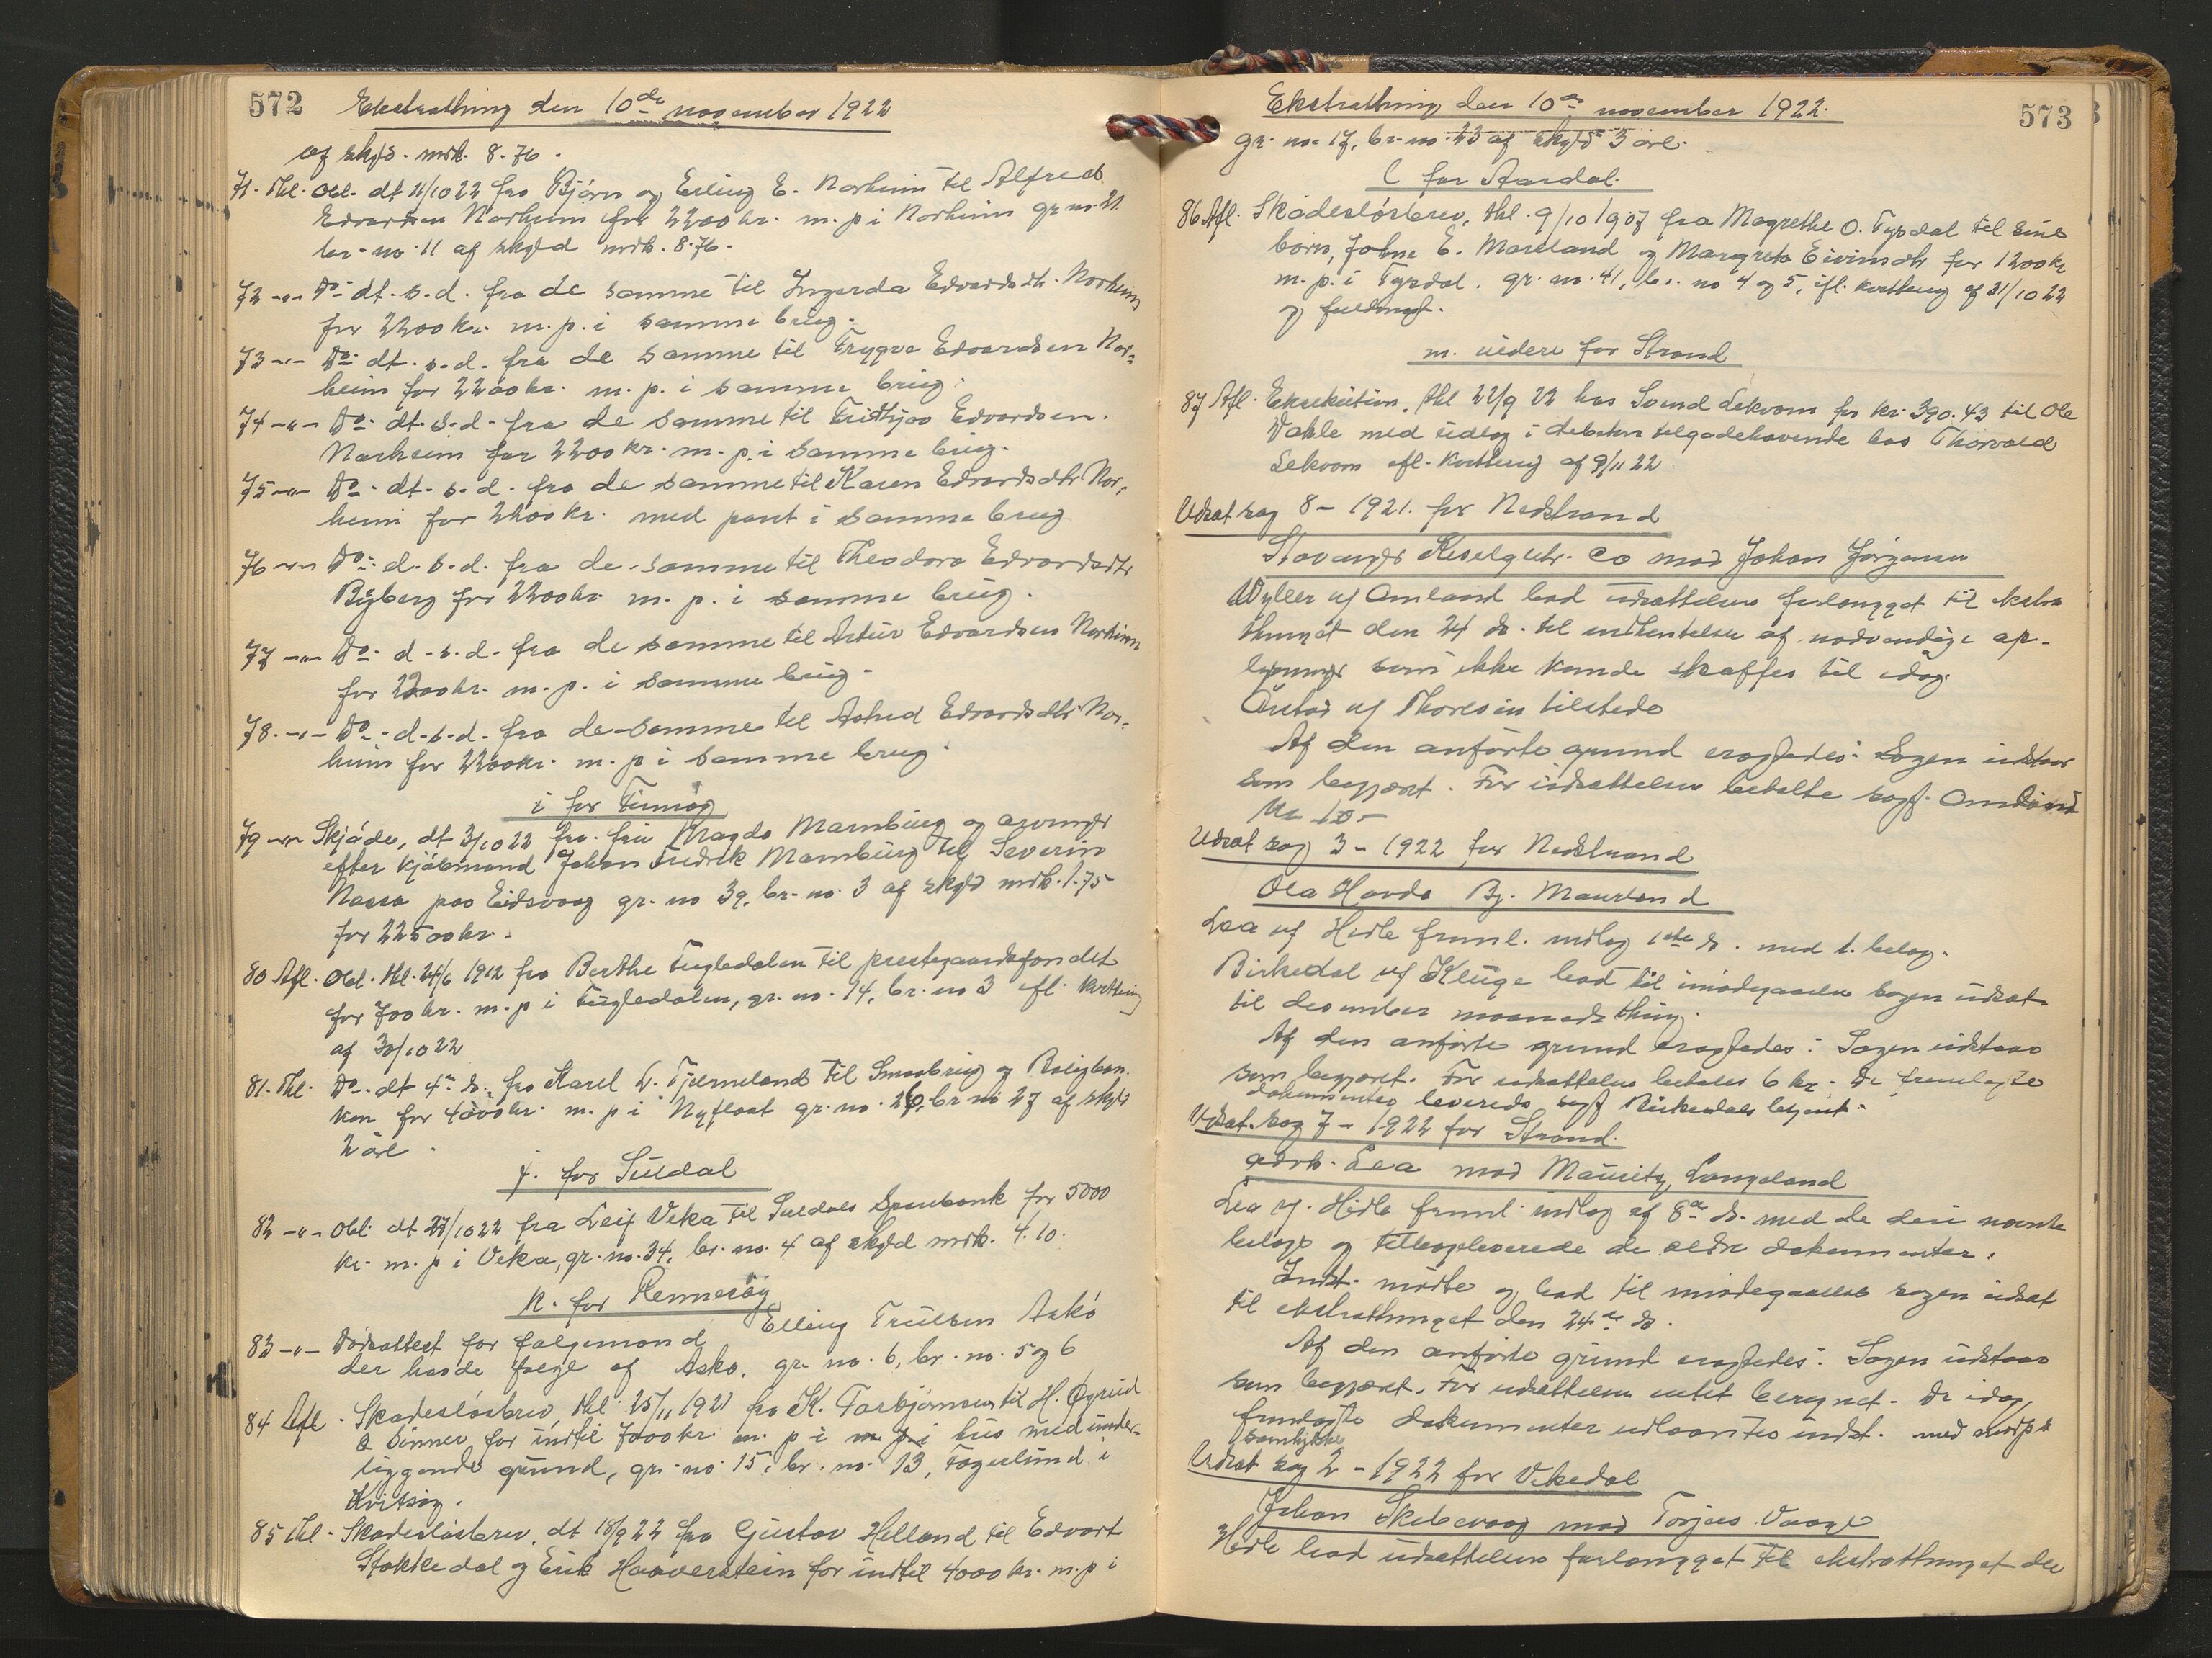 572
Ekstrathing den 10de november 1922
af skyld mrk. 8.76.
71. Thl. Obl. dt 11/10 22 fra Bjørn og Erling E. Norheim til Alfred
Edvardsen Norheim for 2200 kr. m. p i Norheim gr no 21
br. no 11 af skyld mrk. 8.76.
72 -"- Do dt. s. d. fra de samme til Ingerda Edvardsdtr. Norheim
for 2200 kr. m. p. i samme brug.
73 -"- Do dt. s. d. fra de samme til Trygve Edvardsen Nor-
heim for 2200 kr. m. p. i samme brug.
74 -"- Do dt. s. d. fra de samme til Fridtjov Edvardsen
Norheim for 2200 kr. m. p. i samme brug.
75 -"- Do dt. s. d. fra de samme til Karen Edvardsdtr Nor-
heim for 2200 kr. med pant i samme brug
76 -"- Do d. s. d. fra de samme til Theodora Edvardsdtr
Bigberg for 2200 kr m. p. i samme brug.
77 -"- Do d. s. d. fra de samme til Artur Edvardsen Norheim
for 2200 kr. m. p. i samme brug.
78. -"- Do d. s. d. fra de samme til Astrid Edvardsdtr Nor-
heim for 2200 kr. m. p i samme brug.
i for Finnøy
79 -"- Skjøde, dt 3/10 22 fra fru Magda Mamburg og arvinger
efter kjøbmand Johan Fredrik Mamburg til Severin
Nessa paa Eidsvaag gr. no 39, br. no. 3 af skyld mrk. 1.75
for 22500 kr.
80 Afl. Obl. thl. 24/6 1912 fra Berthe Fugledalen til prestegaardsfondet
for 700 kr. m. p i Fugledalen, gr. no. 14, br. no 3 ifl. kvittering
af 30/10 22
81. Thl. Do dt 4de ds. fra Karel L. Tjerneland til Smaabrug og Boligban-
ken for 4000 kr. m. p i Nyfloat gr. no. 26, br no 27 af skyld
2 øre.
j. for Suldal
82 -"- Obl. dt 27/10 22 fra Leif Veka til Suldals Sparebank for 5000
kr. m. p i Veka, gr. no. 34, br. no. 4 af skyld mrk. 4.10.
k. for Rennesøy
83 -"- Dødsattest for følgemand Elling Trulsen Askø
der havde følge af Askø, gr. no. 6, br. no. 5 og 6
84 Afl. Skadesløsbrev, thl. 25/11 1921 fra K. Torbjørnsen til H. Øgrud
& sønner for indtil 7000 kr. m. p i hus med under-
liggende grund, gr. no. 15, br. no. 13, Fogerlund i
Kvitsøy.
85 Thl. Skadesløsbrev, dt 18/9 22 fra Gustav Helland til Edvart
Stokkedal og Erik Haaverstein for indtil 4000 kr. m. p i
Ekstrathing den 10de november 1922.
573
gr. no. 17, br. no. 23 af skyld 3 øre.
l for Aardal.
86 Afl. Skadesløsbrev, thl. 9/10 1907 fra Magrethe O. Tysdal til sine
børn, Johne E. Moreland og Margreta Eivindsdtr for 1200 kr
m. p. i Tysdal, gr. no. 41, br. no 4 og 5, ifl. kvittering af 31/10 22
og fuldmagt.
m. videre for Strand
87 Afl. Eksekution, thl 22/9 22 hos Svend Lekvam for kr. 390.43 til Ole
Vatle med udlæg i debitors tilgodehavende hos Thorvald
Lekvam ifl. kvittering af 9/11 22
Udsat sag 8 - 1921. for Nedstrand
Stavanger Kiselguhr. Co mod Johan Jørgensen
Wyller uf Omland bad udsættelsen forlænget til ekstra
thinget den 24 ds. til indhentelse af nødvendige op-
lysninger som ikke kunde skaffes til idag.
Østad uf Thoresen tilstede
Af den anførte grund eragtedes: Sagen udstaar
som begjært. For udsættelsen betalte sagf. Omland
kr 10 -
Udsat sag 3 - 1922 for Nedstrand
Ola Havda Bj. Mauvland
Lea uf Hidle freml. indlæg 1ste ds. med 1. belæg.
Birkedal uf Kluge bad til imødegaaelse sagen udsat
til desember maanedsthing.
Af den anførte grund eragtedes: Sagen udstaar
som begjært. For udsættelsen betales 6 kr. De fremlagte
dokumenter leveredes sagf Birkedals
Udsat. sag 7 - 1922 for Strand.
Lea mod Mauritz Langeland
Lea uf. Hidle freml. indlæg af 8de ds. med de deri nævnte
belæg og tilbageleverede de ældre dokumenter.
Indst. mødte og bad til imødegaaelse sagen udsat
til ekstrathinget den 24de ds.
Af den anførte grund eragtedes: Sagen udstaar
som begjært. For udsættelsen intet beregnet. De idag
fremlagte dokumenter udlaantes indst. med
samtykke
Udsat sag 2 - 1922 for Vikedal
Johan Skebevaag mod Torjus Vaage
Hidle bad udsættelsen forlænget til ekstrathinget den